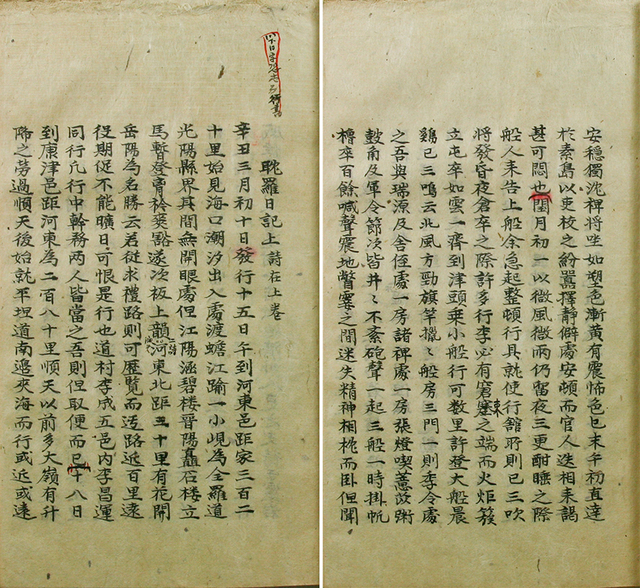 耽羅日記上 詩在上卷
辛丑三月初十日發行十五日午到河東邑距家三百二
十里始見海口潮汐出入處渡蟾江踰一小峴為全羅道
光陽縣界其間無開眼處但江陽涵碧樓晉陽矗石樓立
馬暫登豁遂次板上韻河東北距三十里有花開
岳陽為名勝云若從求禮路則可歷覽而迃路近百里遠
役期促不能曠日可恨是行也道村李成五邑內李昌運
同行凡行中幹務兩人皆當之吾則但取便而已十八日
到康津邑距河東為二百八十里順天以前多大嶺有升
降之勞過順天後始就平坦道南邊來海而行或近或遠
安穩獨沈裨將坐如塑色漸黃有震怖色巳末午初直達
於素島以吏校之紛囂擇靜僻處安頓而官人迭相來謁
甚可悶也閏月初一以微風微雨仍留夜三更酣睡之際
船人來告上船余急起整頓行具就使行舘所則已三吹
將發昏夜倉卒之際許多行李必有窘之端而火炬簇
立屯卒如雲一齊到津頭乘小船行可数里許登大船晨
鷄已三鳴云北風方勁旗竿獵〻船房三門一則李令處
之吾與瑞源及舍侄處一房諸裨處一房張燈喫薏苡粥
鼓角及軍令節次皆井〻不紊砲聲一起三船一時掛帆
櫓卒百餘喊聲震地瞥霎之間迷失精神相枕而卧但聞